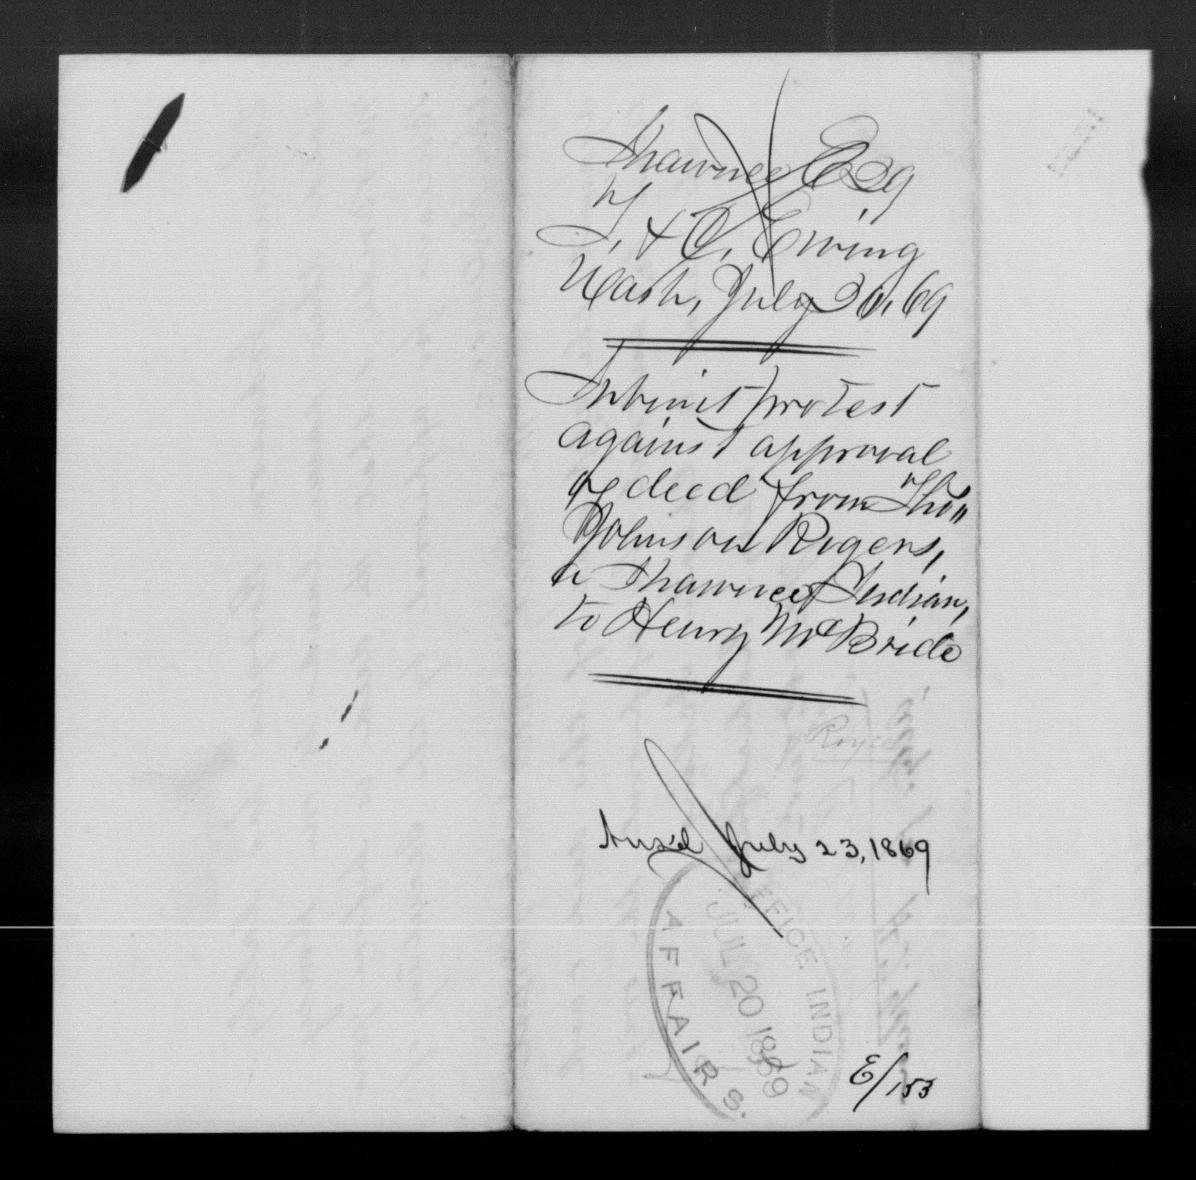 Shawnee E 239
of
T. & C. Ewing
Wash, July 20, 69
Submit protest
against approval
of deed from
Johnson Rogers,
a Shawnee Indian,
to Henry McBride
Royce
Ans'd July 23, 1869
OFFICE INDIAN
JUL 20 1869
AFFAIRS.
E/153